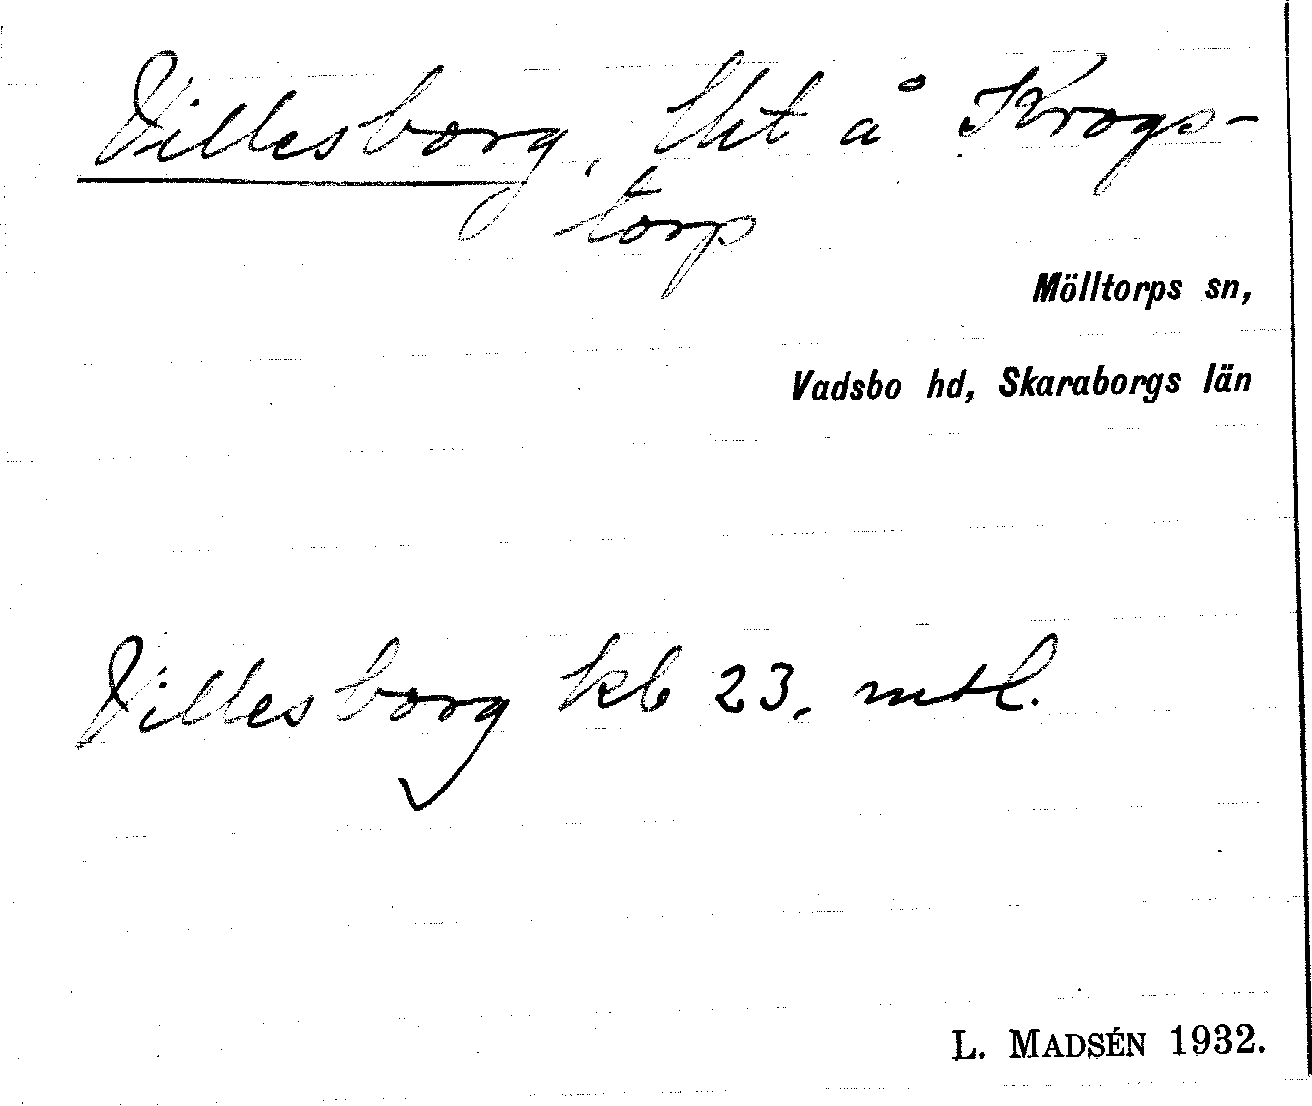 Villesborg, lht å Krogs-
torp
Mölltorps sn,
Vadsbo hd, Skaraborgs län
Villesborg kb 23. mtl.
L. MADSÉN 1932.